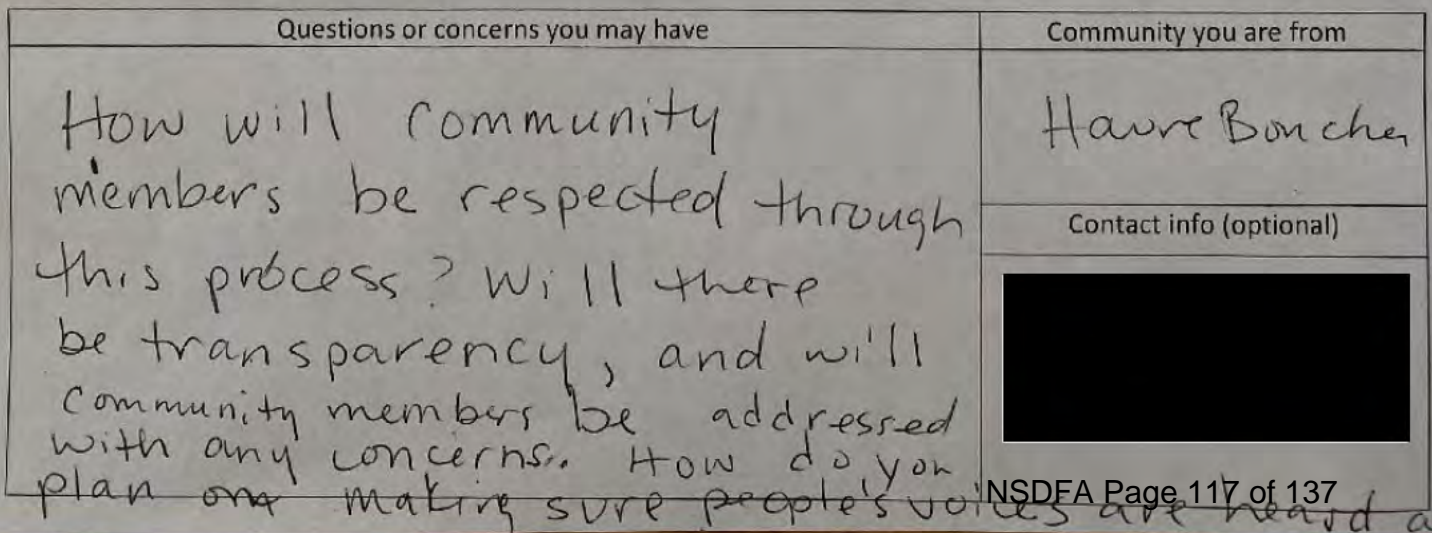 Questions or concerns you may have
How will community
members be respected through
this process? Will there
be transparency, and will
community members be addressed
with any concerns. How do you
plan on making sure people's voices are heard a
Community you are from
Havre Boucher
Contact info (optional)
NSDFA Page 117 of 137